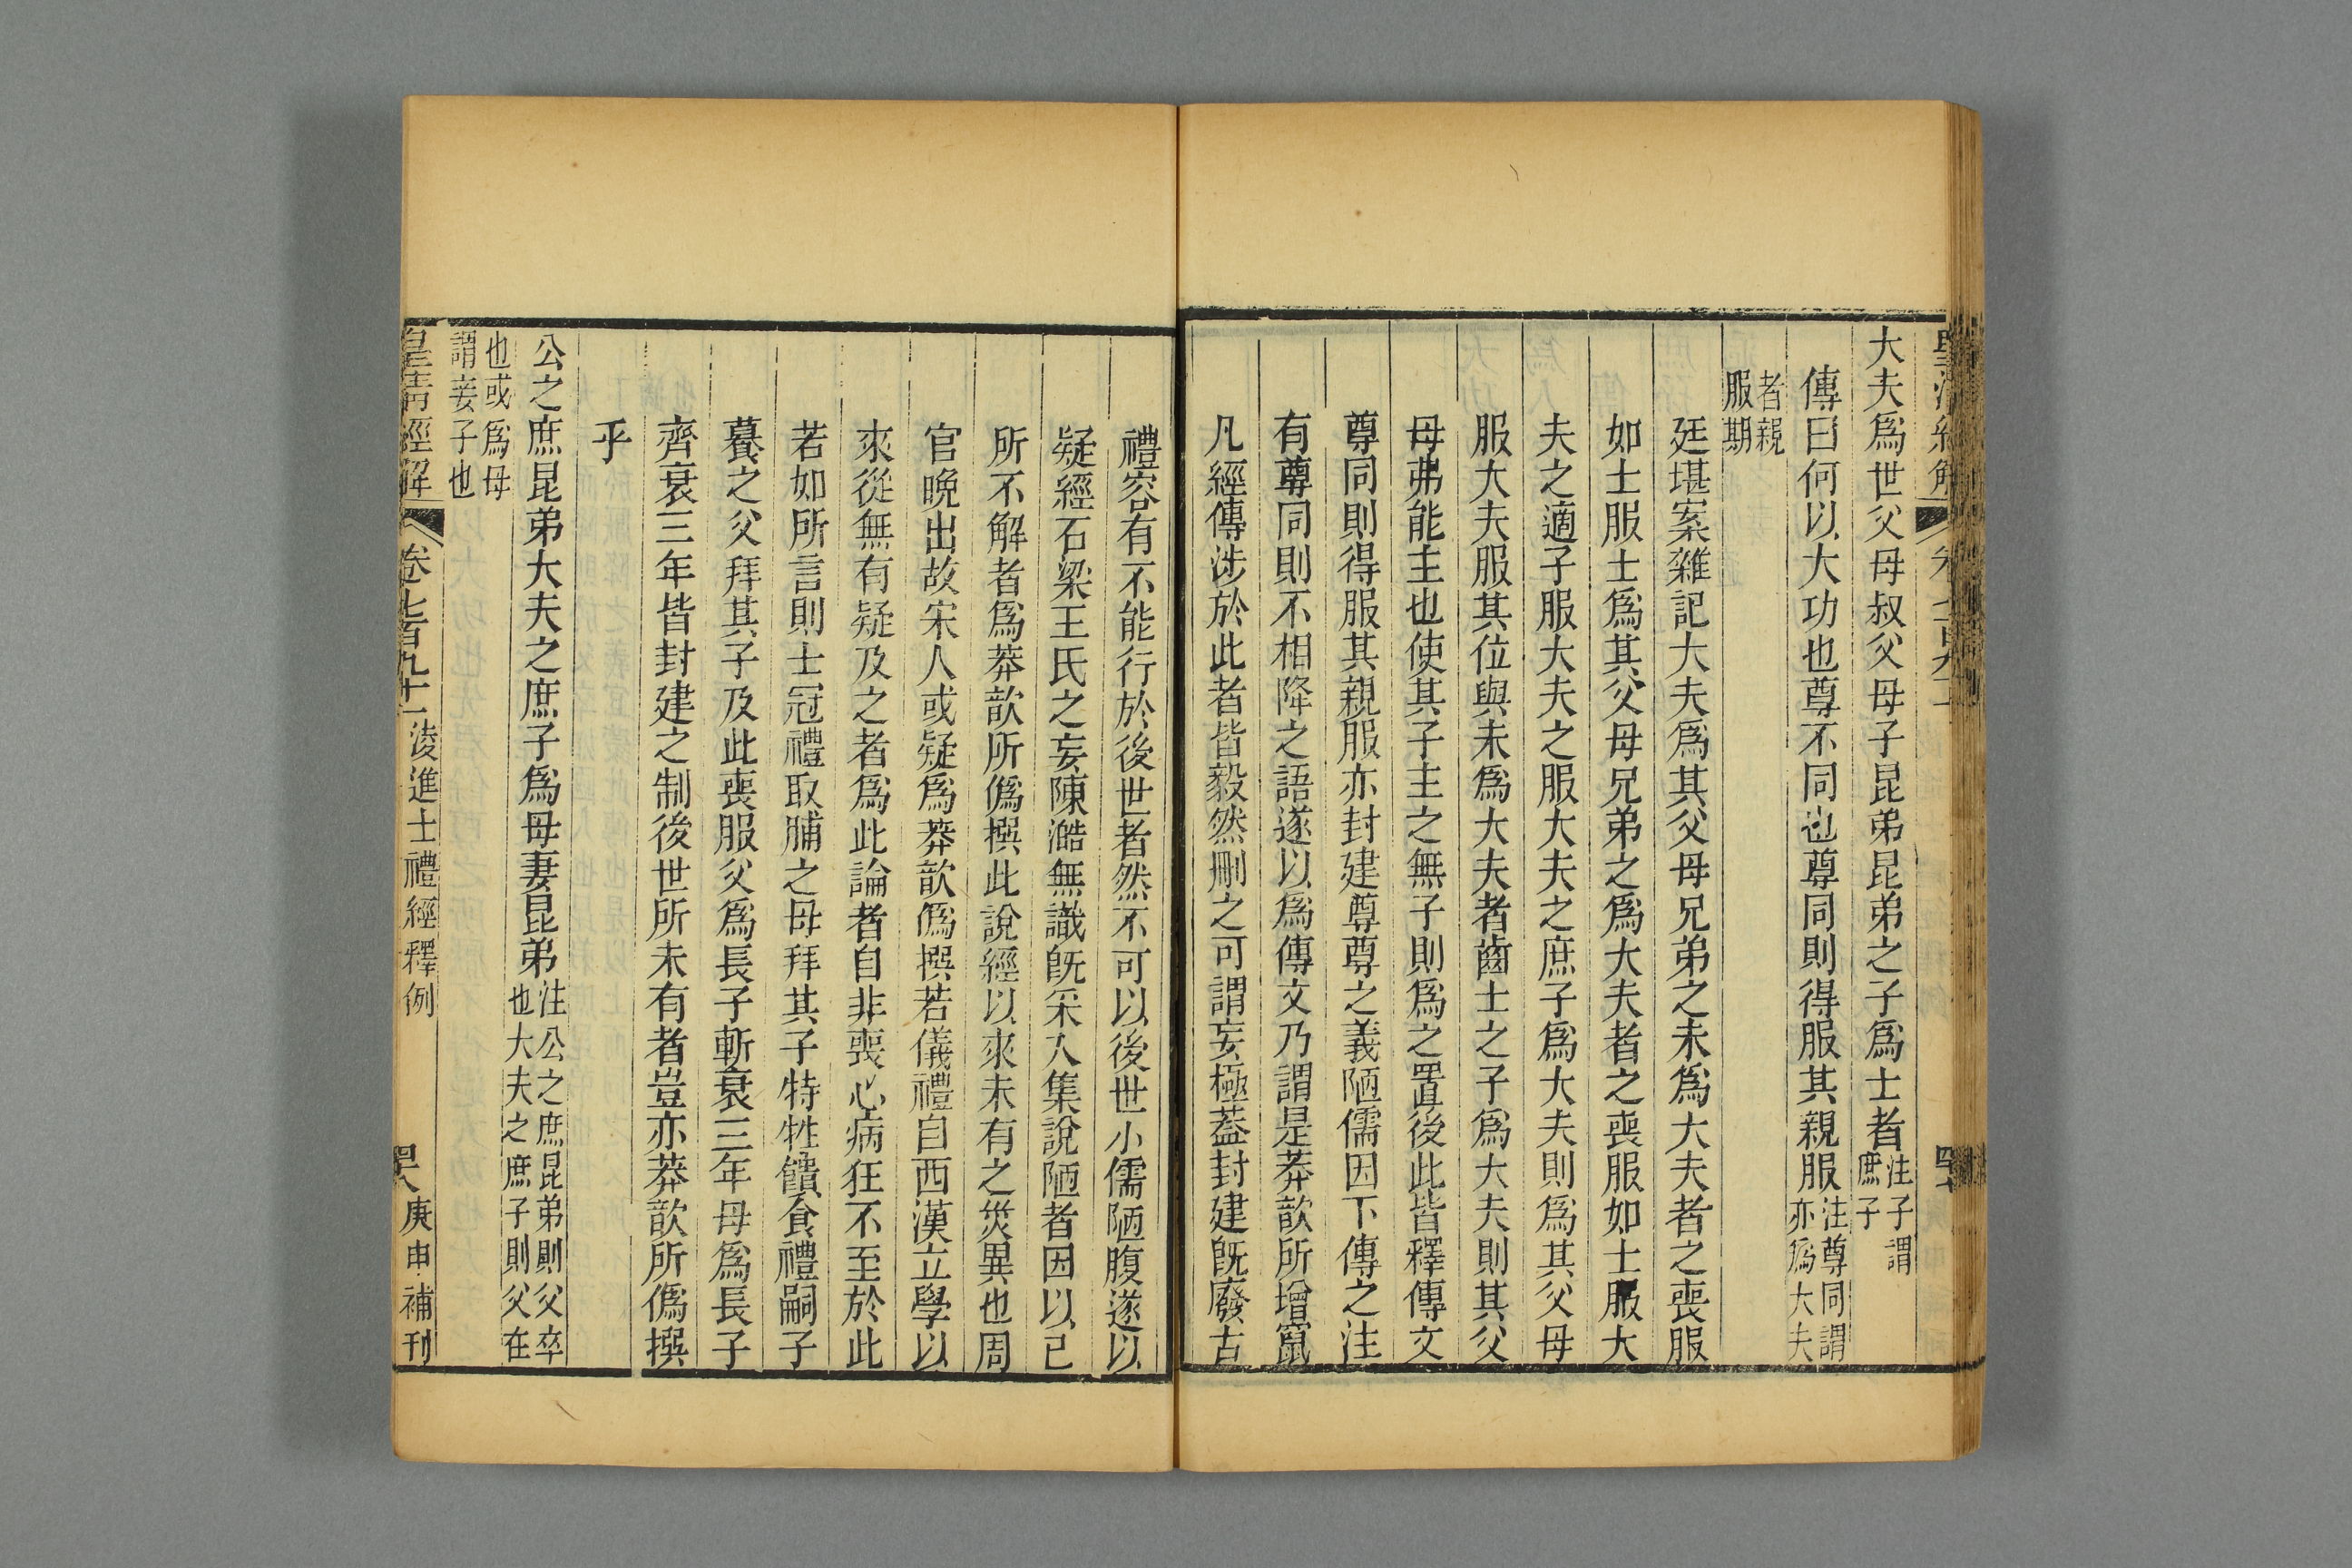 大夫爲世父母叔父母子昆弟昆弟之子爲士者注子謂庶子
傳曰何以大功也尊不同也尊同則得服其親服注尊同謂亦爲大夫
者親服期
廷堪案雜記大夫爲其父母兄弟之未爲大夫者之喪服
如士服士爲其父母兄弟之爲大夫者之喪服如士服大
夫之適子服大夫之服大夫之庶子爲大夫則爲其父母
服大夫服其位與未爲大夫者齒士之子爲大夫則其父
母弗能主也使其子主之無子則爲之置後此皆釋傳文
尊同則得服其親服亦封建尊尊之義陋儒因下傳之注
有尊同則不相降之語遂以爲傳文乃謂是莽歆所增竄
凡經傳涉於此者皆毅然刪之可謂妄極蓋封建旣廢古
禮容有不能行於後世者然不可以後世小儒陋腹遂以
疑經石梁王氏之妄陳澔無識旣采入集說陋者因以己
所不解者爲莽歆所僞撰此說經以來未有之災異也周
官晚出故宋人或疑爲莽歆僞撰若儀禮自西漢立學以
來從無有疑及之者爲此論者自非喪心病狂不至於此
若如所言則士冠禮取脯之母拜其子特牲饋食禮嗣子
養之父拜其子及此喪服父爲長子斬衰三年母爲長子
齊衰三年皆封建之制後世所未有者豈亦莽歆所僞撰
乎
公之庶昆弟大夫之庶子爲母妻昆弟注公之庶昆弟則父卒也大夫之庶子則父在
也或爲母謂妾子也
皇淸經解 卷七百九十一 淩進士禮經釋例 庚申補刊